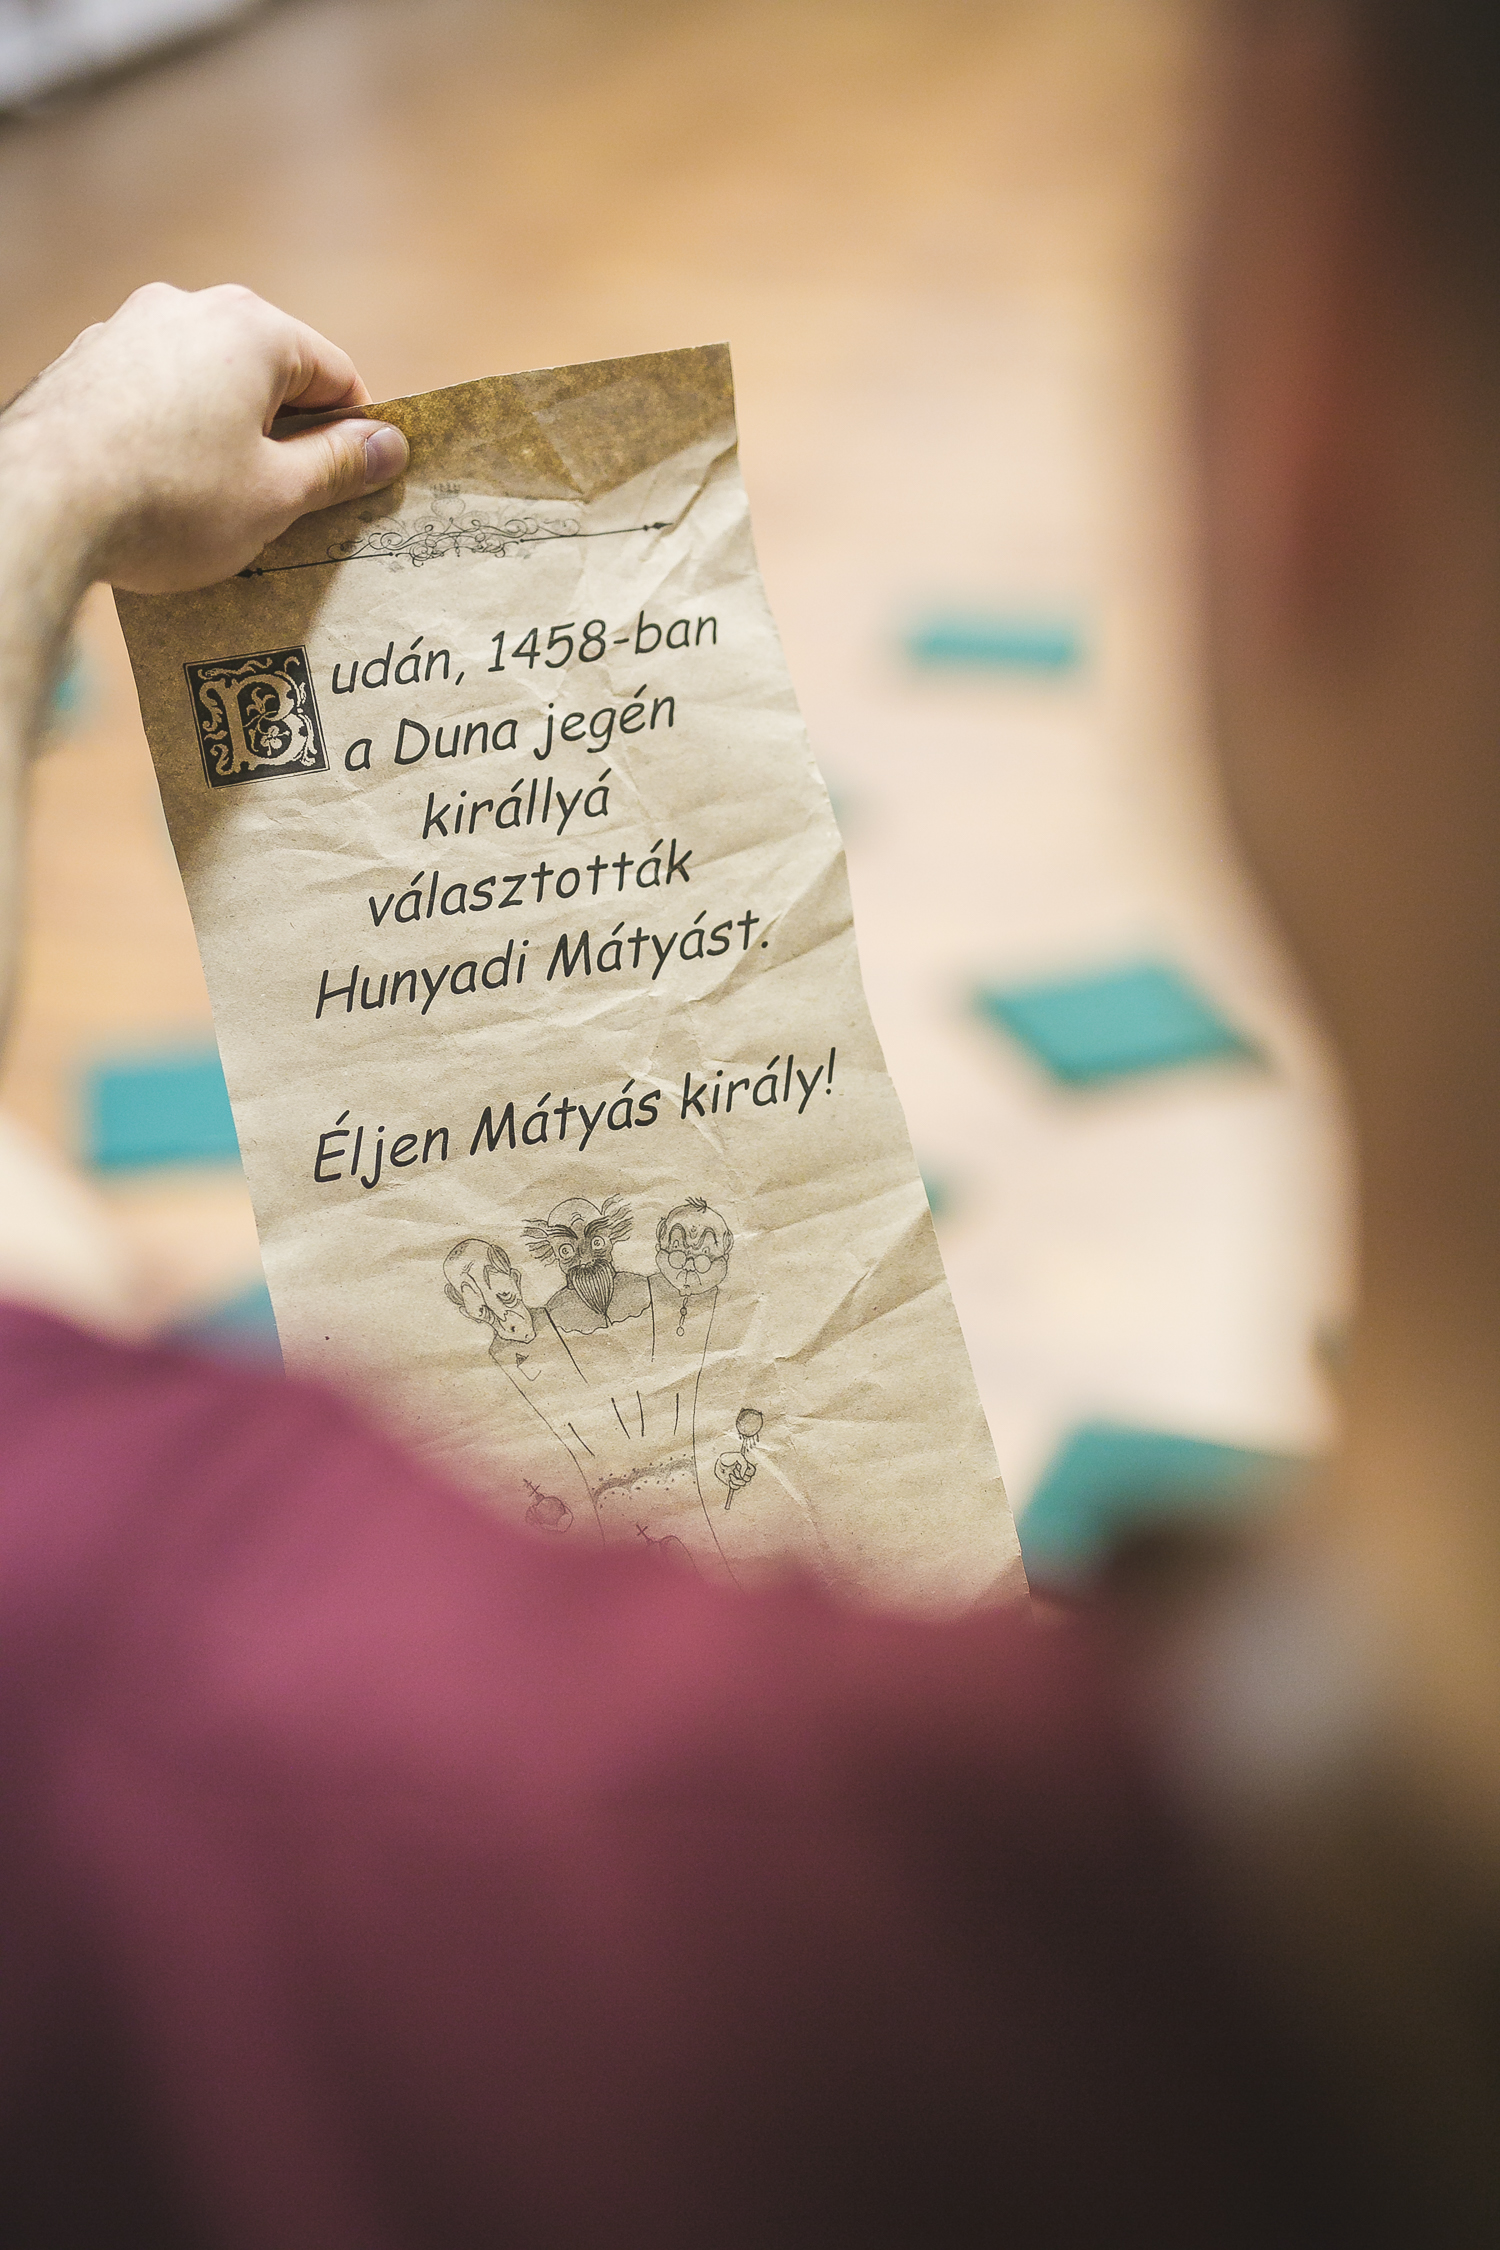 Budán, 1458-ban
a Duna jegén
királlyá
választották
Hunyadi Mátyást.
Éljen Mátyás király!